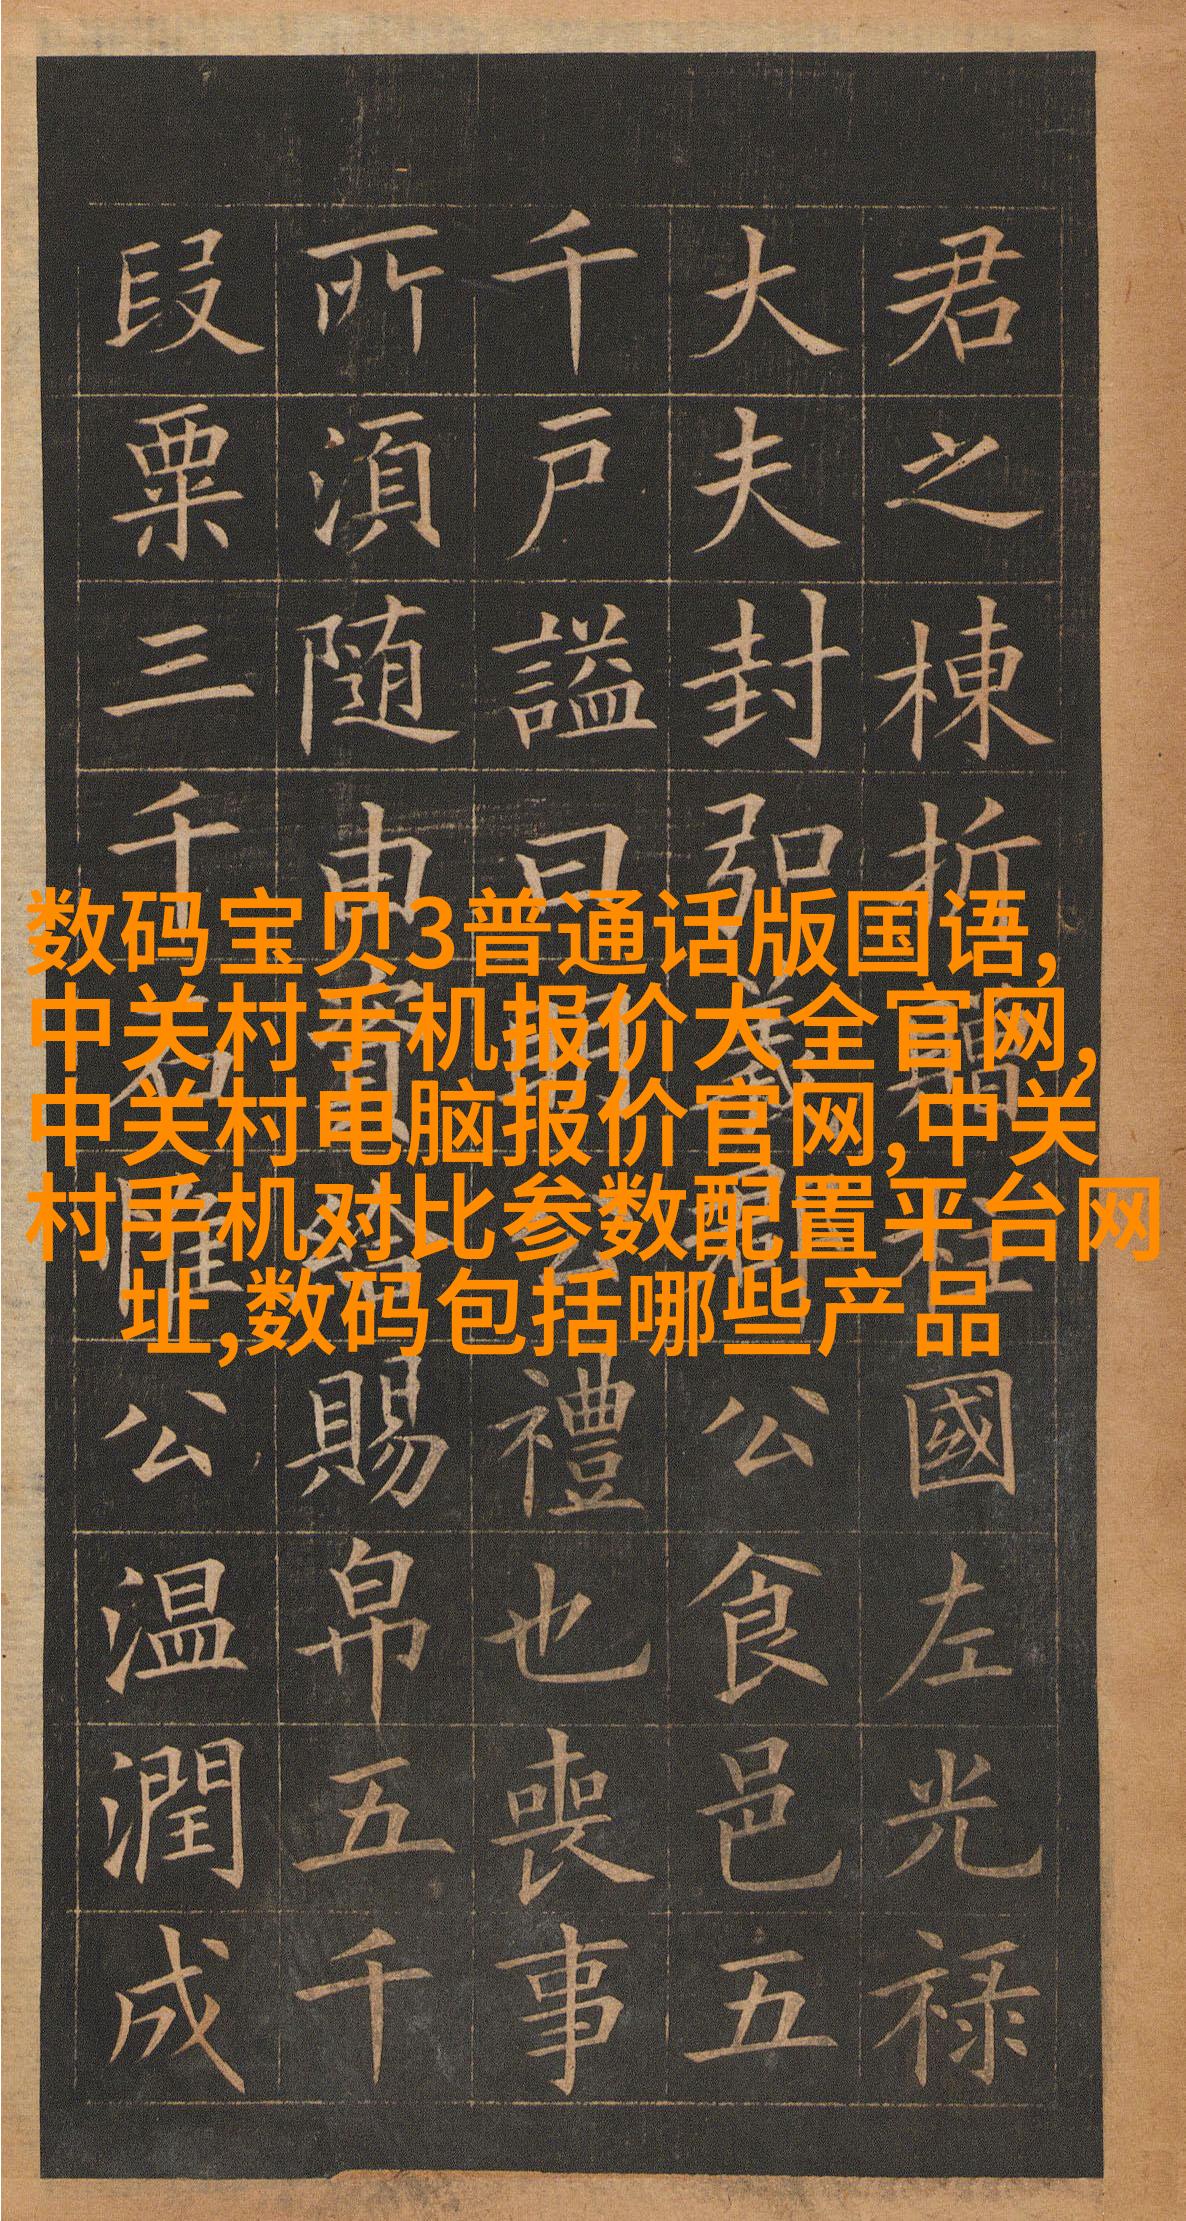 君之棟折贈柱國左光祿
大夫封弘義郡公食邑五
千戶謚曰明公禮也喪事
所須随由資給賜帛五千
段粟三千石惟公温潤成
数码宝贝3普通话版国语,
中关村手机报价大全官网,
中关村电脑报价官网,中关
村手机对比参数配置平台网
址,数码包括哪些产品